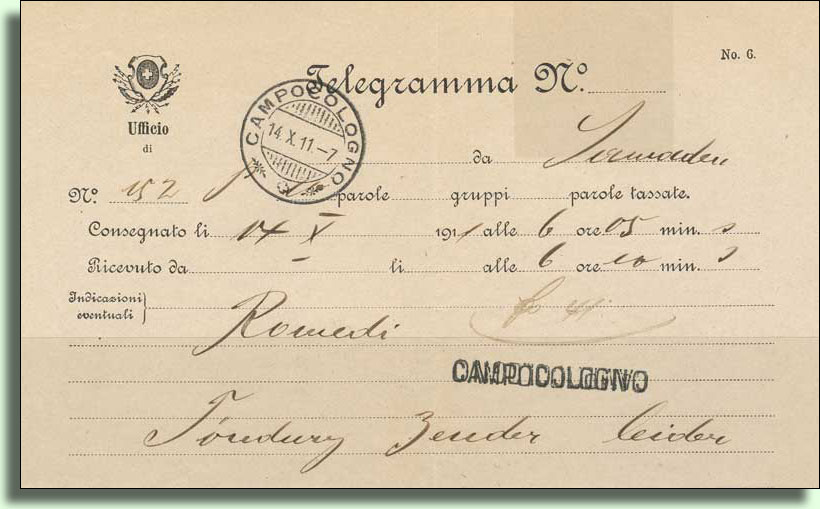 No. 6.
Telegramma No.
Ufficio
di
CAMPOCOLOGNO
14.X.11.–7
da Samaden
No. 152 parole gruppi parole tassate.
Consegnato li 14 X 1911 alle 6 ore 05 min. s
Ricevuto da – li alle 6 ore 10 min. s
Indicazioni
eventuali
Romedi
CAMPOCOLOGNO
Töndury Zender leider